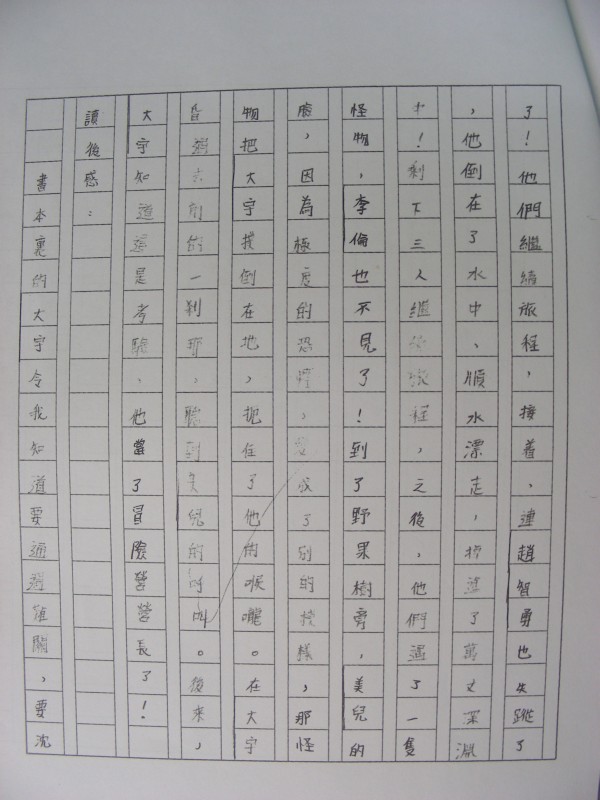 了！他們繼續旅程，接着，連趙智勇也失蹤了
，他倒在了水中、順水漂走，掉進了萬丈深淵
中！剩下三人繼續旅程，之後，他們遇了一隻
怪物，李倫也不見了！到了野果樹旁，美兒的
，因為極度的恐懼，變成了別的模樣，那怪
物把大宇撲倒在地，扼住了他的喉嚨。在大宇
昏過去前的一刹那，聽到美兒的叫。後來，
大宇知道這是考驗，他當了冒險營營長了！
讀後感：
書本裏的大宇令我知道要通過難關，要沈